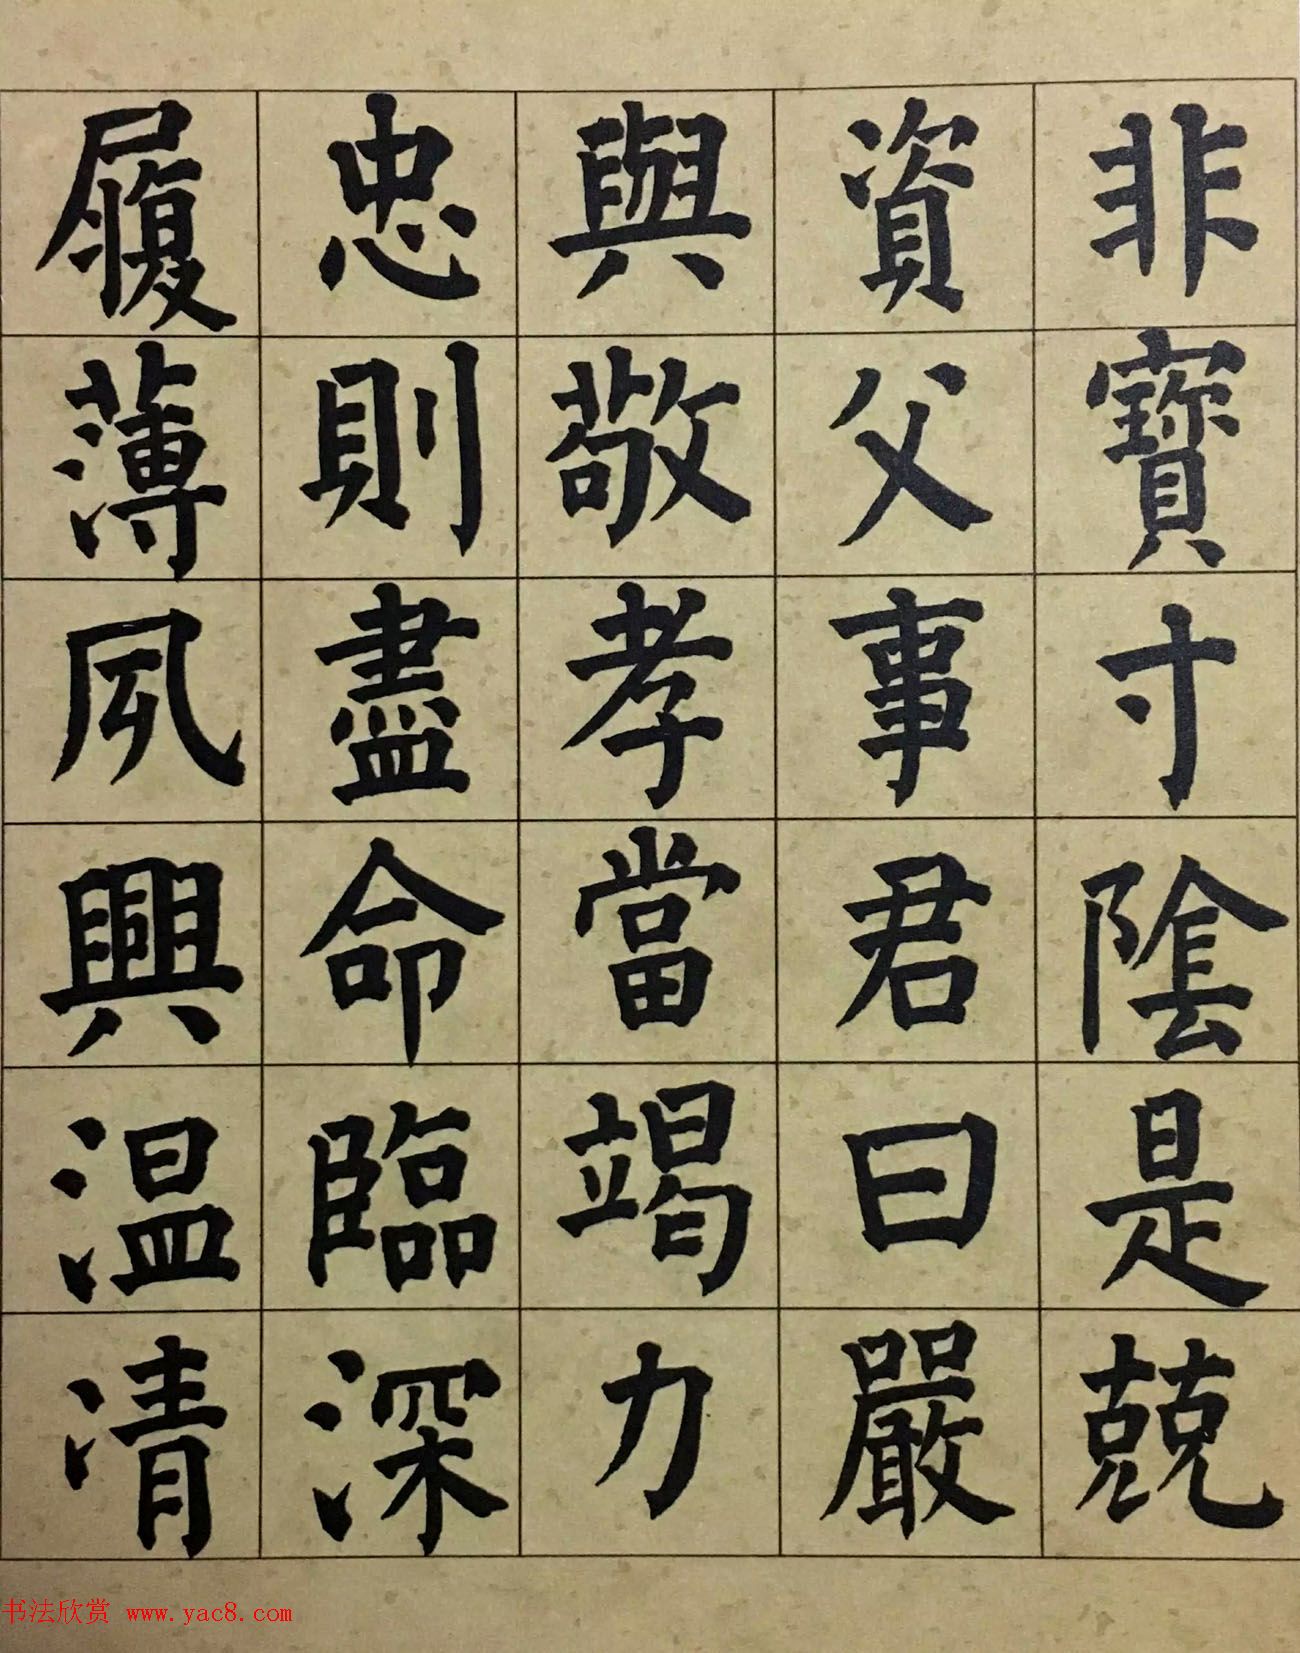 非寶寸陰是兢
資父事君曰嚴
與敬孝當竭力
忠則盡命臨深
履薄夙興温清
书法欣赏 www.yac8.com